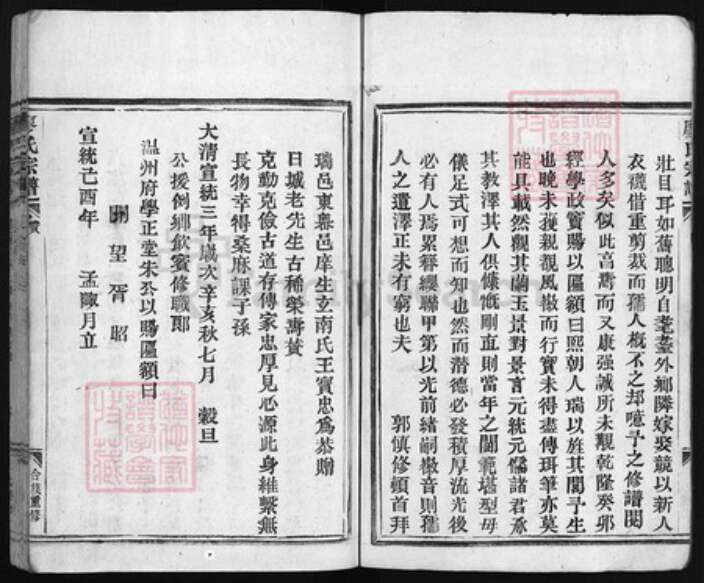 壯目耳如舊聰明自耄耋外鄉隣嫁娶競以新人
衣襪借重剪裁而孺人概不之却噫予之修譜閱
人多矣似此高壽而又康强誠所未覯乾隆癸卯
經學政竇賜以匾額曰熙朝人瑞以旌其閭予生
也晚未獲親覩風徽而行實未得盡傳珥筆亦莫
能具載然觀其蘭玉景對景言元統元儒諸君承
其教澤其人俱慷慨剛直則當年之閫範堪型母
儀足式可想而知也然而潛德必發積厚流光後
必有人焉累簪纓聯甲第以光前緒嗣徽音則孺
人之遺澤正未有窮也夫
郭慎修頓首拜
瑞邑東 邑庠生玄南氏王寶忠爲恭贈
日城老先生古稀榮壽贊
克勤克儉古道有傳家忠厚見心源此身維繫無
長物幸得桑麻課子孫
大清宣統三年歲次辛亥秋七月 穀旦
公援例鄉飲賓修職郎
温州府學正堂朱公以賜匾額曰
望胥昭
宣統己酉年 孟陬月立
廖氏宗譜
贊
合族重修